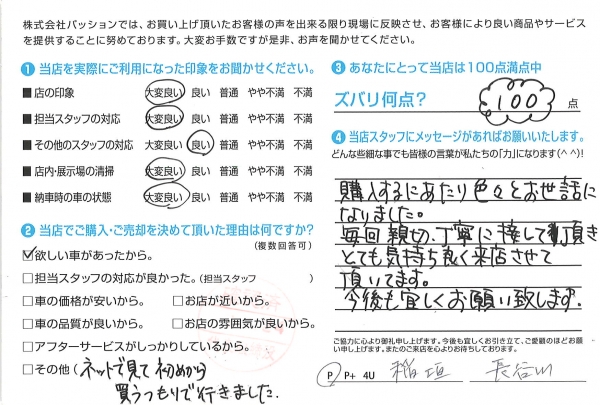 株式会社パッションでは、お買い上げ頂いたお客様の声を出来る限り現場に反映させ、お客様により良い商品やサービス
を提供することに努めております。大変お手数ですが是非、お声を聞かせてください。
❶ 当店を実際にご利用になった印象をお聞かせください。
■ 店の印象 大変良い 良い 普通 やや不満 不満
■ 担当スタッフの対応 大変良い 良い 普通 やや不満 不満
■ その他のスタッフの対応 大変良い 良い 普通 やや不満 不満
■ 店内・展示場の清掃 大変良い 良い 普通 やや不満 不満
■ 納車時の車の状態 大変良い 良い 普通 やや不満 不満
❷ 当店でご購入・ご売却を決めて頂いた理由は何ですか?
(複数回答可)
☑欲しい車があったから。
□担当スタッフの対応が良かった。(担当スタッフ )
□車の価格が安いから。 □お店が近いから。
□車の品質が良いから。 □お店の雰囲気が良いから。
□アフターサービスがしっかりしているから。
□その他 ( ネットで見て初めから
買うつもりで行きました.
❸ あなたにとって当店は100点満点中
ズバリ何点? 100 点
❹ 当店スタッフにメッセージがあればお願いいたします。
どんな些細な事でも皆様の言葉が私たちの「力」になります(^^)!
購入するにあたり色々とお世話に
なりました。
毎回親切、丁寧に接して頂き
とても気持ち良く来店させて
頂いてます。
今後も宜しくお願い致します.
ご協力に心より御礼申し上げます。今後も宜しくお引き立て、ご愛顧のほどお願
い申し上げます。またのご来店を心よりお待ちしております。
P P+ 4U 稲垣 長谷川